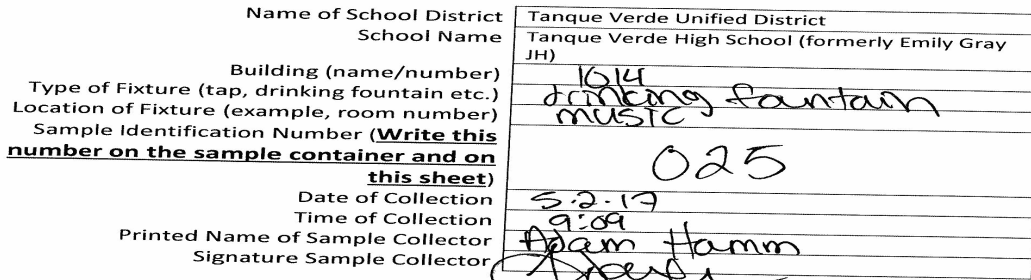 Name of School District Tanque Verde Unified District
School Name Tanque Verde High School (formerly Emily Gray
JH)
Building (name/number) 1014
Type of Fixture (tap, drinking fountain etc.) drinking fountain
Location of Fixture (example, room number) music
Sample Identification Number (Write this
number on the sample container and on
this sheet) 025
Date of Collection 5.2.17
Time of Collection 9:09
Printed Name of Sample Collector Adam Hamm
Signature Sample Collector